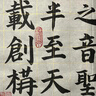 之音聖
半至天
載創構